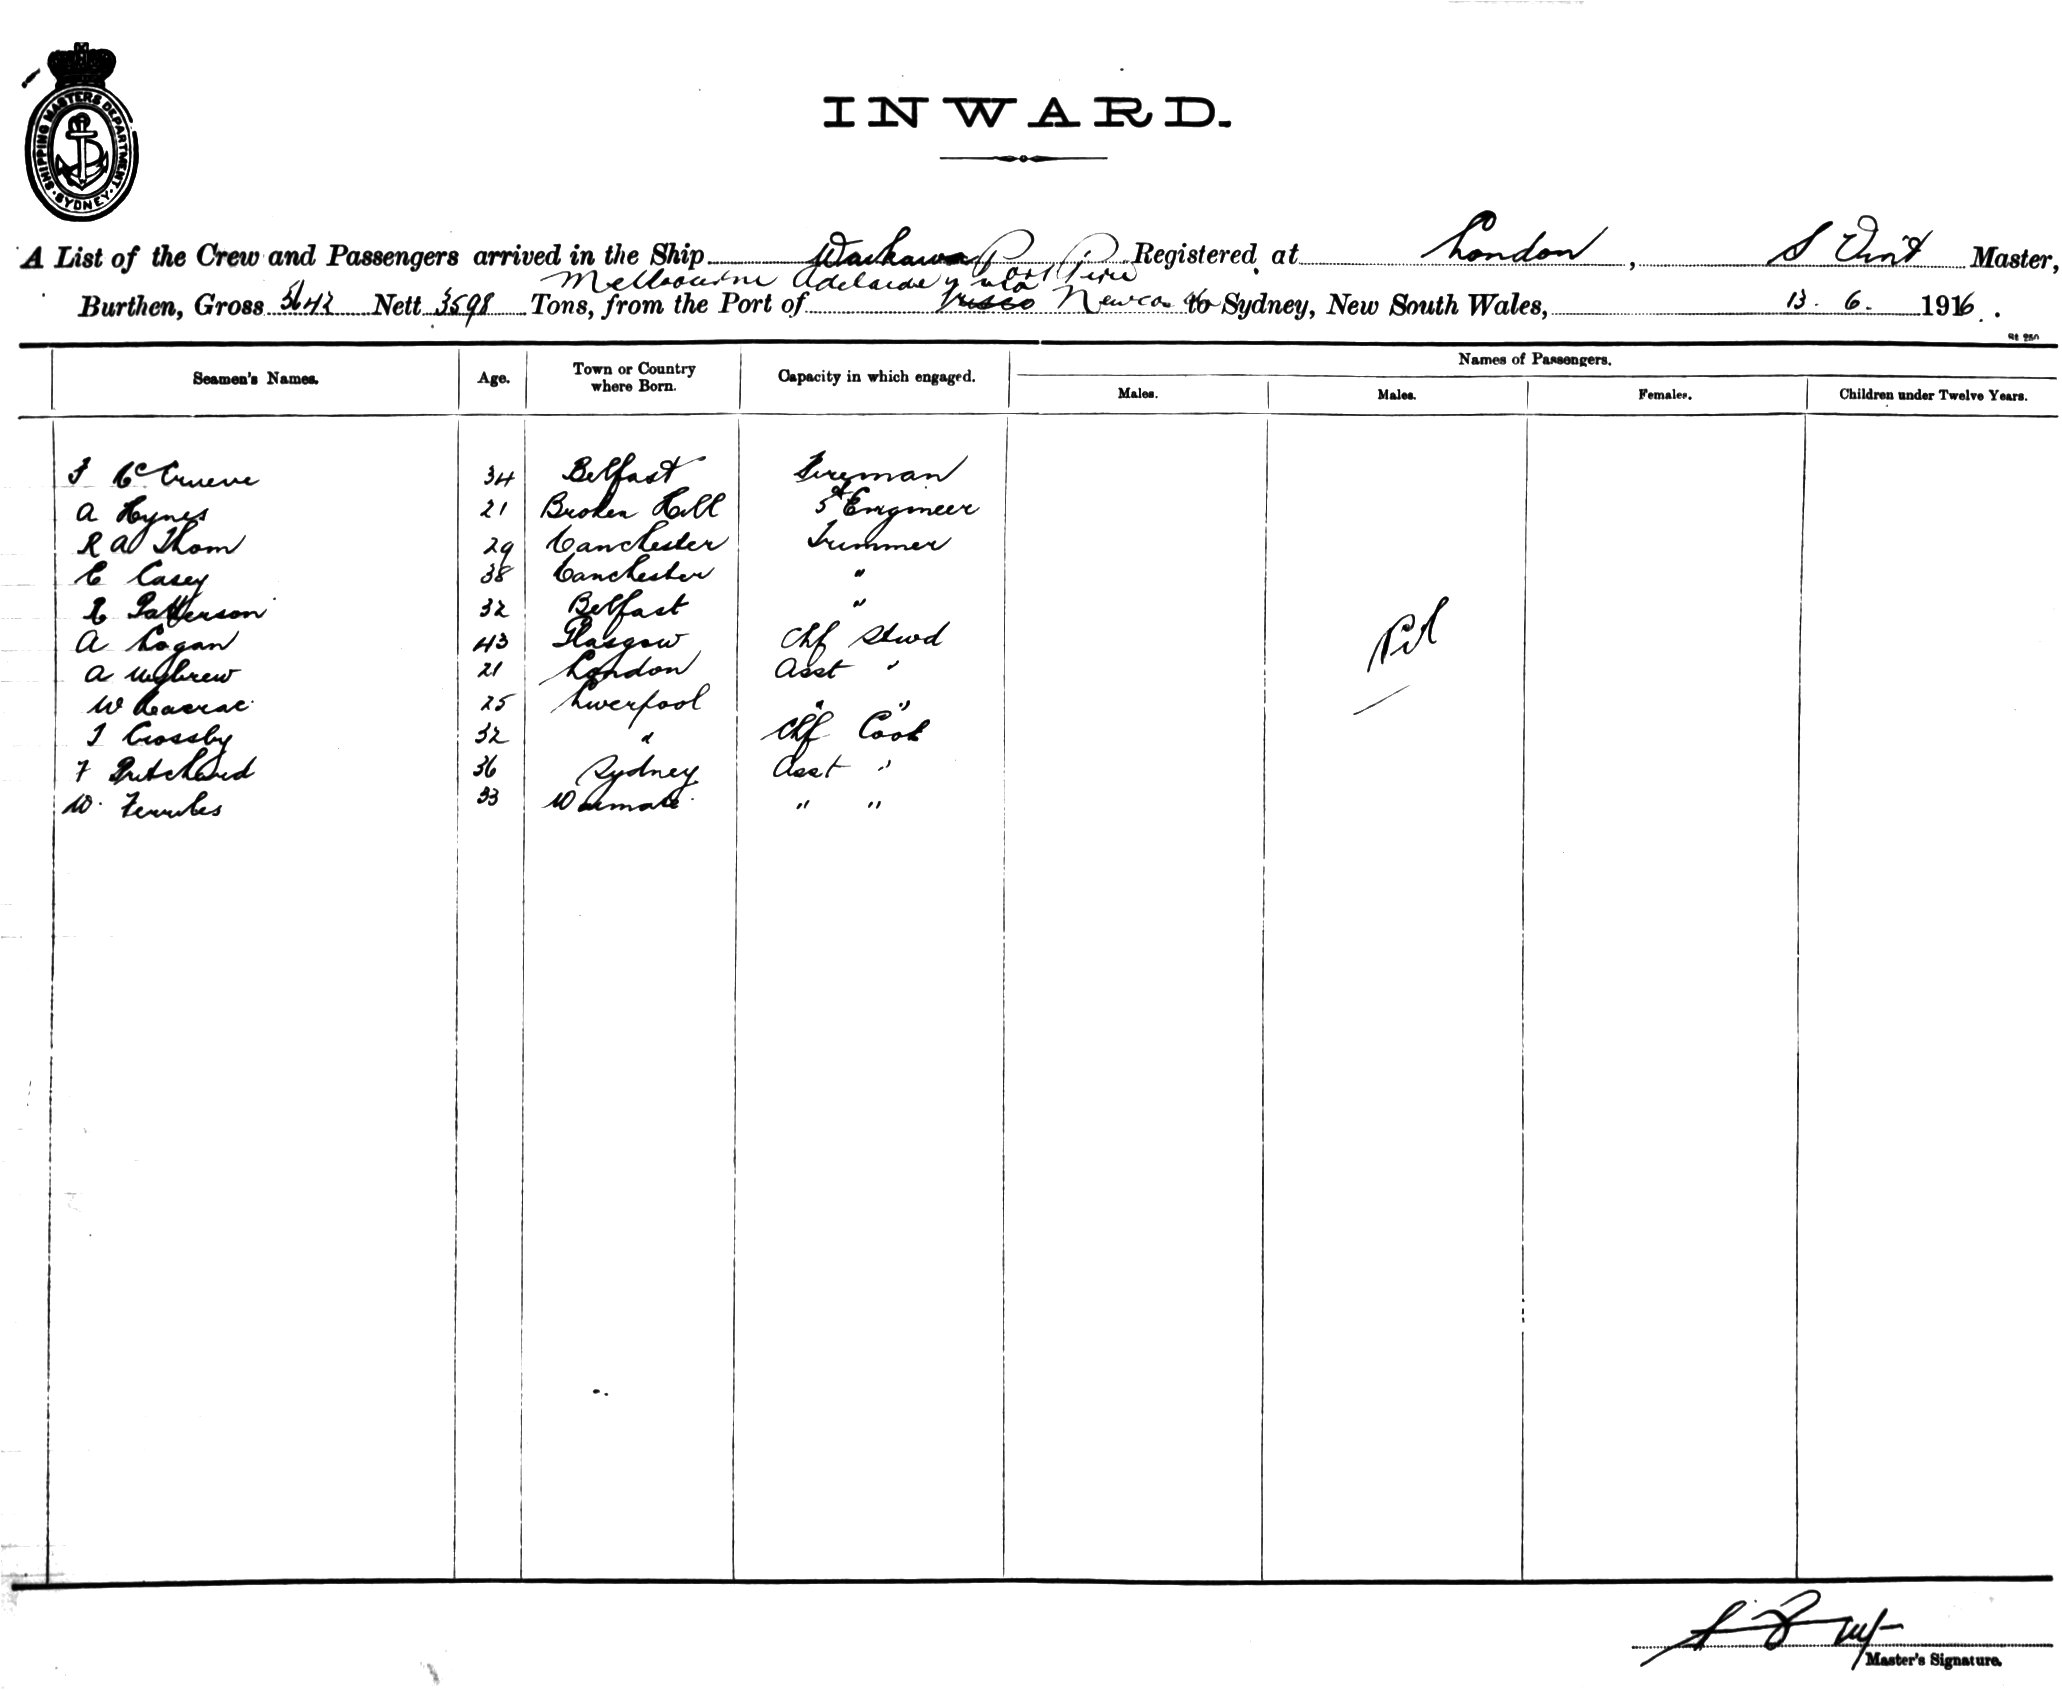 SHIPPING MASTERS DEPARTMENT. SYDNEY
INWARD.
A List of the Crew and Passengers arrived in the Ship Registered at London, S Master,
Melbourne Adelaide Port Pirie
Burthen, Gross 5642 Nett 3598 Tons, from the Port of to Sydney, New South Wales, 13. 6. 1916.
Seamen's Names. Age. Town or Country where Born. Capacity in which engaged. Names of Passengers.
Males. Males. Females. Children under Twelve Years.
34 Belfast Fireman
A Hynes 21 Broken Hill 5th Engineer
R A Thom 29 Trimmer
C Casey 38 "
R Patterson 32 Belfast "
A Logan 43 Glasgow Chf Stwd
A 21 London Asst "
W 25 Liverpool " "
J Crossby 32 " Chf Cook
F Pritchard 36 Sydney Asst "
W. 33 " "
Master's Signature.